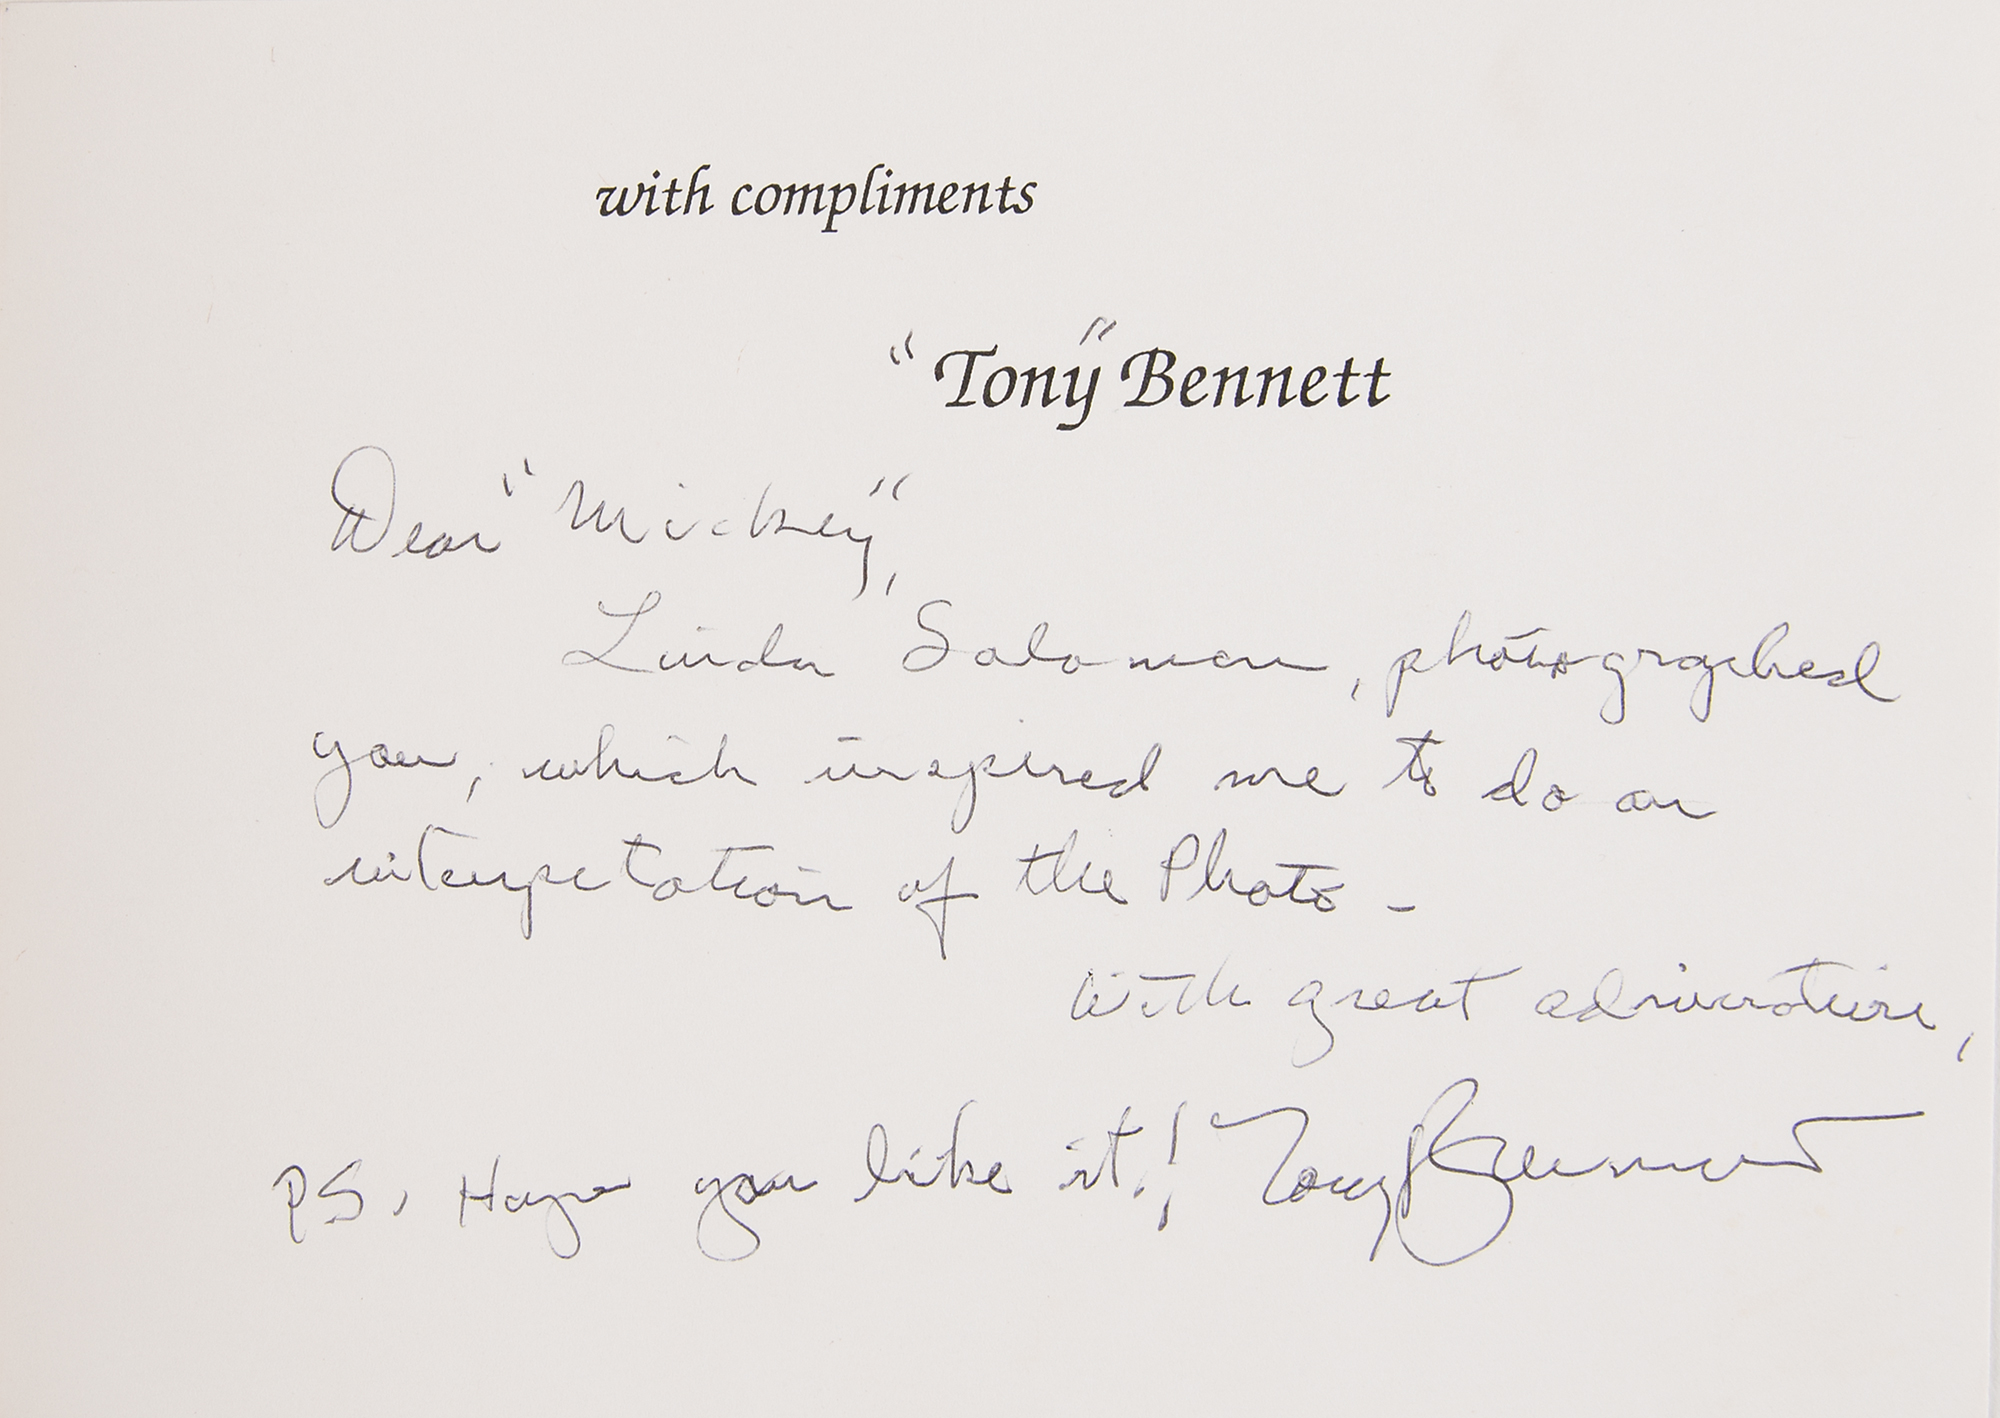 with compliments
"Tony" Bennett
Dear "Mickey",
Linda Solomon, photographed
you, which inspired me to do an
interpetation of the Photo -
With great admiration,
PS, Hope you like it! Tony Bennett